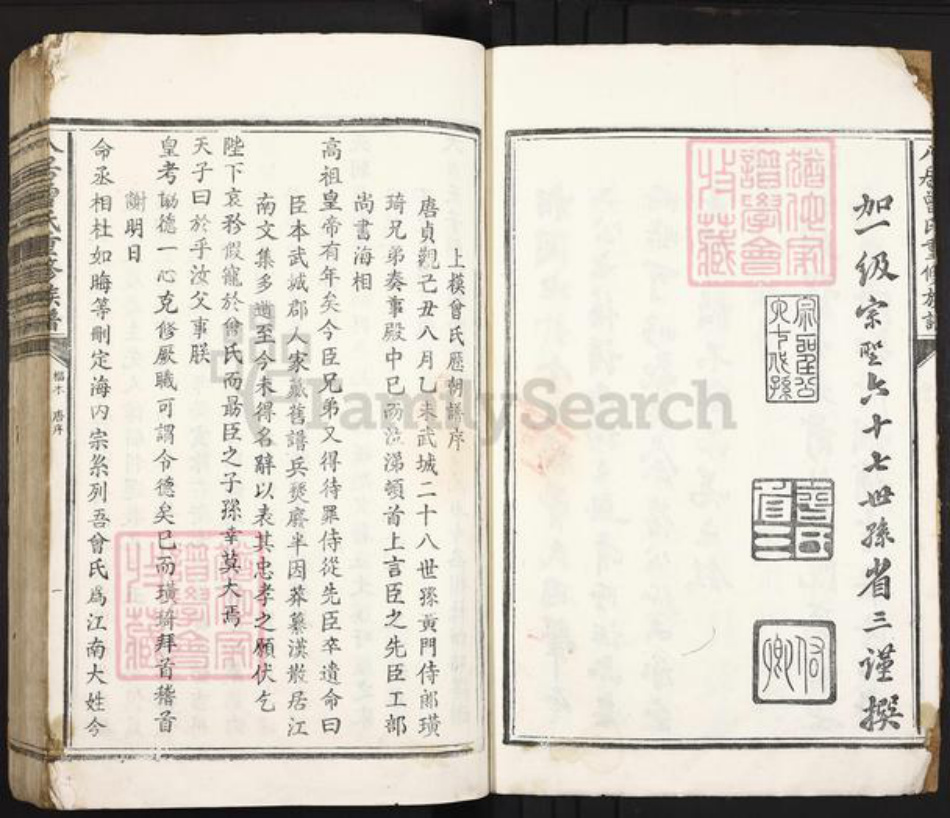 加一級宗聖六十七世孫省三謹撰
宗聖公六十七代孫
猶他家譜學會收藏
上模曾氏歷朝譜序
唐貞觀己丑八月乙未武城二十八世孫黃門侍郎璜
琦兄弟奏事殿中已而泣涕頓首上言臣之先臣工部
尚書海相
高祖皇帝有年矣今臣兄弟又得待罪侍從先臣卒遺命曰
臣本武城郡人家藏舊譜兵燹廢半因莽纂漢散居江
南文集多遺至今未得名辭以表其忠孝之願伏乞
陛下哀矜假寵於曾氏而勗臣之子孫幸莫大焉
天子曰於乎汝父事朕
皇考協德一心克修厥職可謂令德矣已而璜琦拜首稽首
謝明日
命丞相杜如晦等刪定海內宗系列吾曾氏為江南大姓今
曾氏重修族譜
唐序
一
猶他家譜學會收藏
FamilySearch